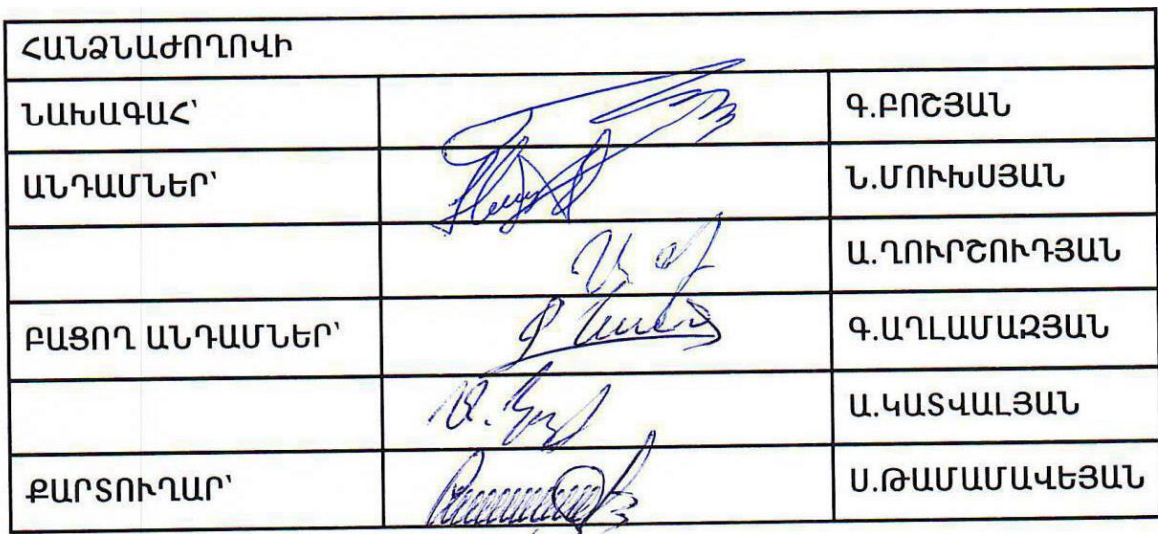 ՀԱՆՁՆԱԺՈՂՈՎԻ
ՆԱԽԱԳԱՀ՝ Գ.ԲՈՇՅԱՆ
ԱՆԴԱՄՆԵՐ՝ Ն.ՄՈՒԽՍՅԱՆ
Ա.ՂՈՒՐՇՈՒԴՅԱՆ
ԲԱՑՈՂ ԱՆԴԱՄՆԵՐ՝ Գ.ԱՂԼԱՄԱԶՅԱՆ
Ա.ԿԱՏՎԱԼՅԱՆ
ՔԱՐՏՈՒՂԱՐ՝ Ս.ԹԱՄԱՄԱՎԵՅԱՆ